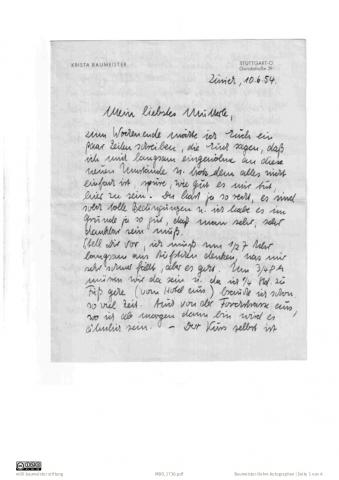 KRISTA BAUMEISTER
STUTTGART-O
Gerokstraße 39
Zürich, 10.6.54.
Mein liebstes Mutterle,
zum Wochenende möchte ich Euch ein
paar Zeilen schreiben, die Euch sagen, daß
ich mich langsam eingewöhne an diese
neuen Umstände u. trotzdem alles nicht
einfach ist, spüre, wie gut es mir tut,
hier zu sein. Du hast ja so recht, es sind
sehr tolle Bedingungen u. ich habe es im
Grunde ja so gut, daß man sehr, sehr
dankbar sein muß.
Stell Dir vor, ich muß um 1/2 7 Uhr
langsam ans Aufstehn denken, was mir
sehr schwer fällt, aber es geht. Um 3/4 8
müssen wir da sein u. da ich 1/4 Std. zu
Fuß gehe (vom Hotel aus) brauche ich schon
so viel Zeit. Auch von der
wo ich ab morgen dann bin wird es
ähnlich sein. – Der Kurs selbst ist
willi baumeister stiftung
Baumeister-Rehm Autographen | Seite 1 von 4